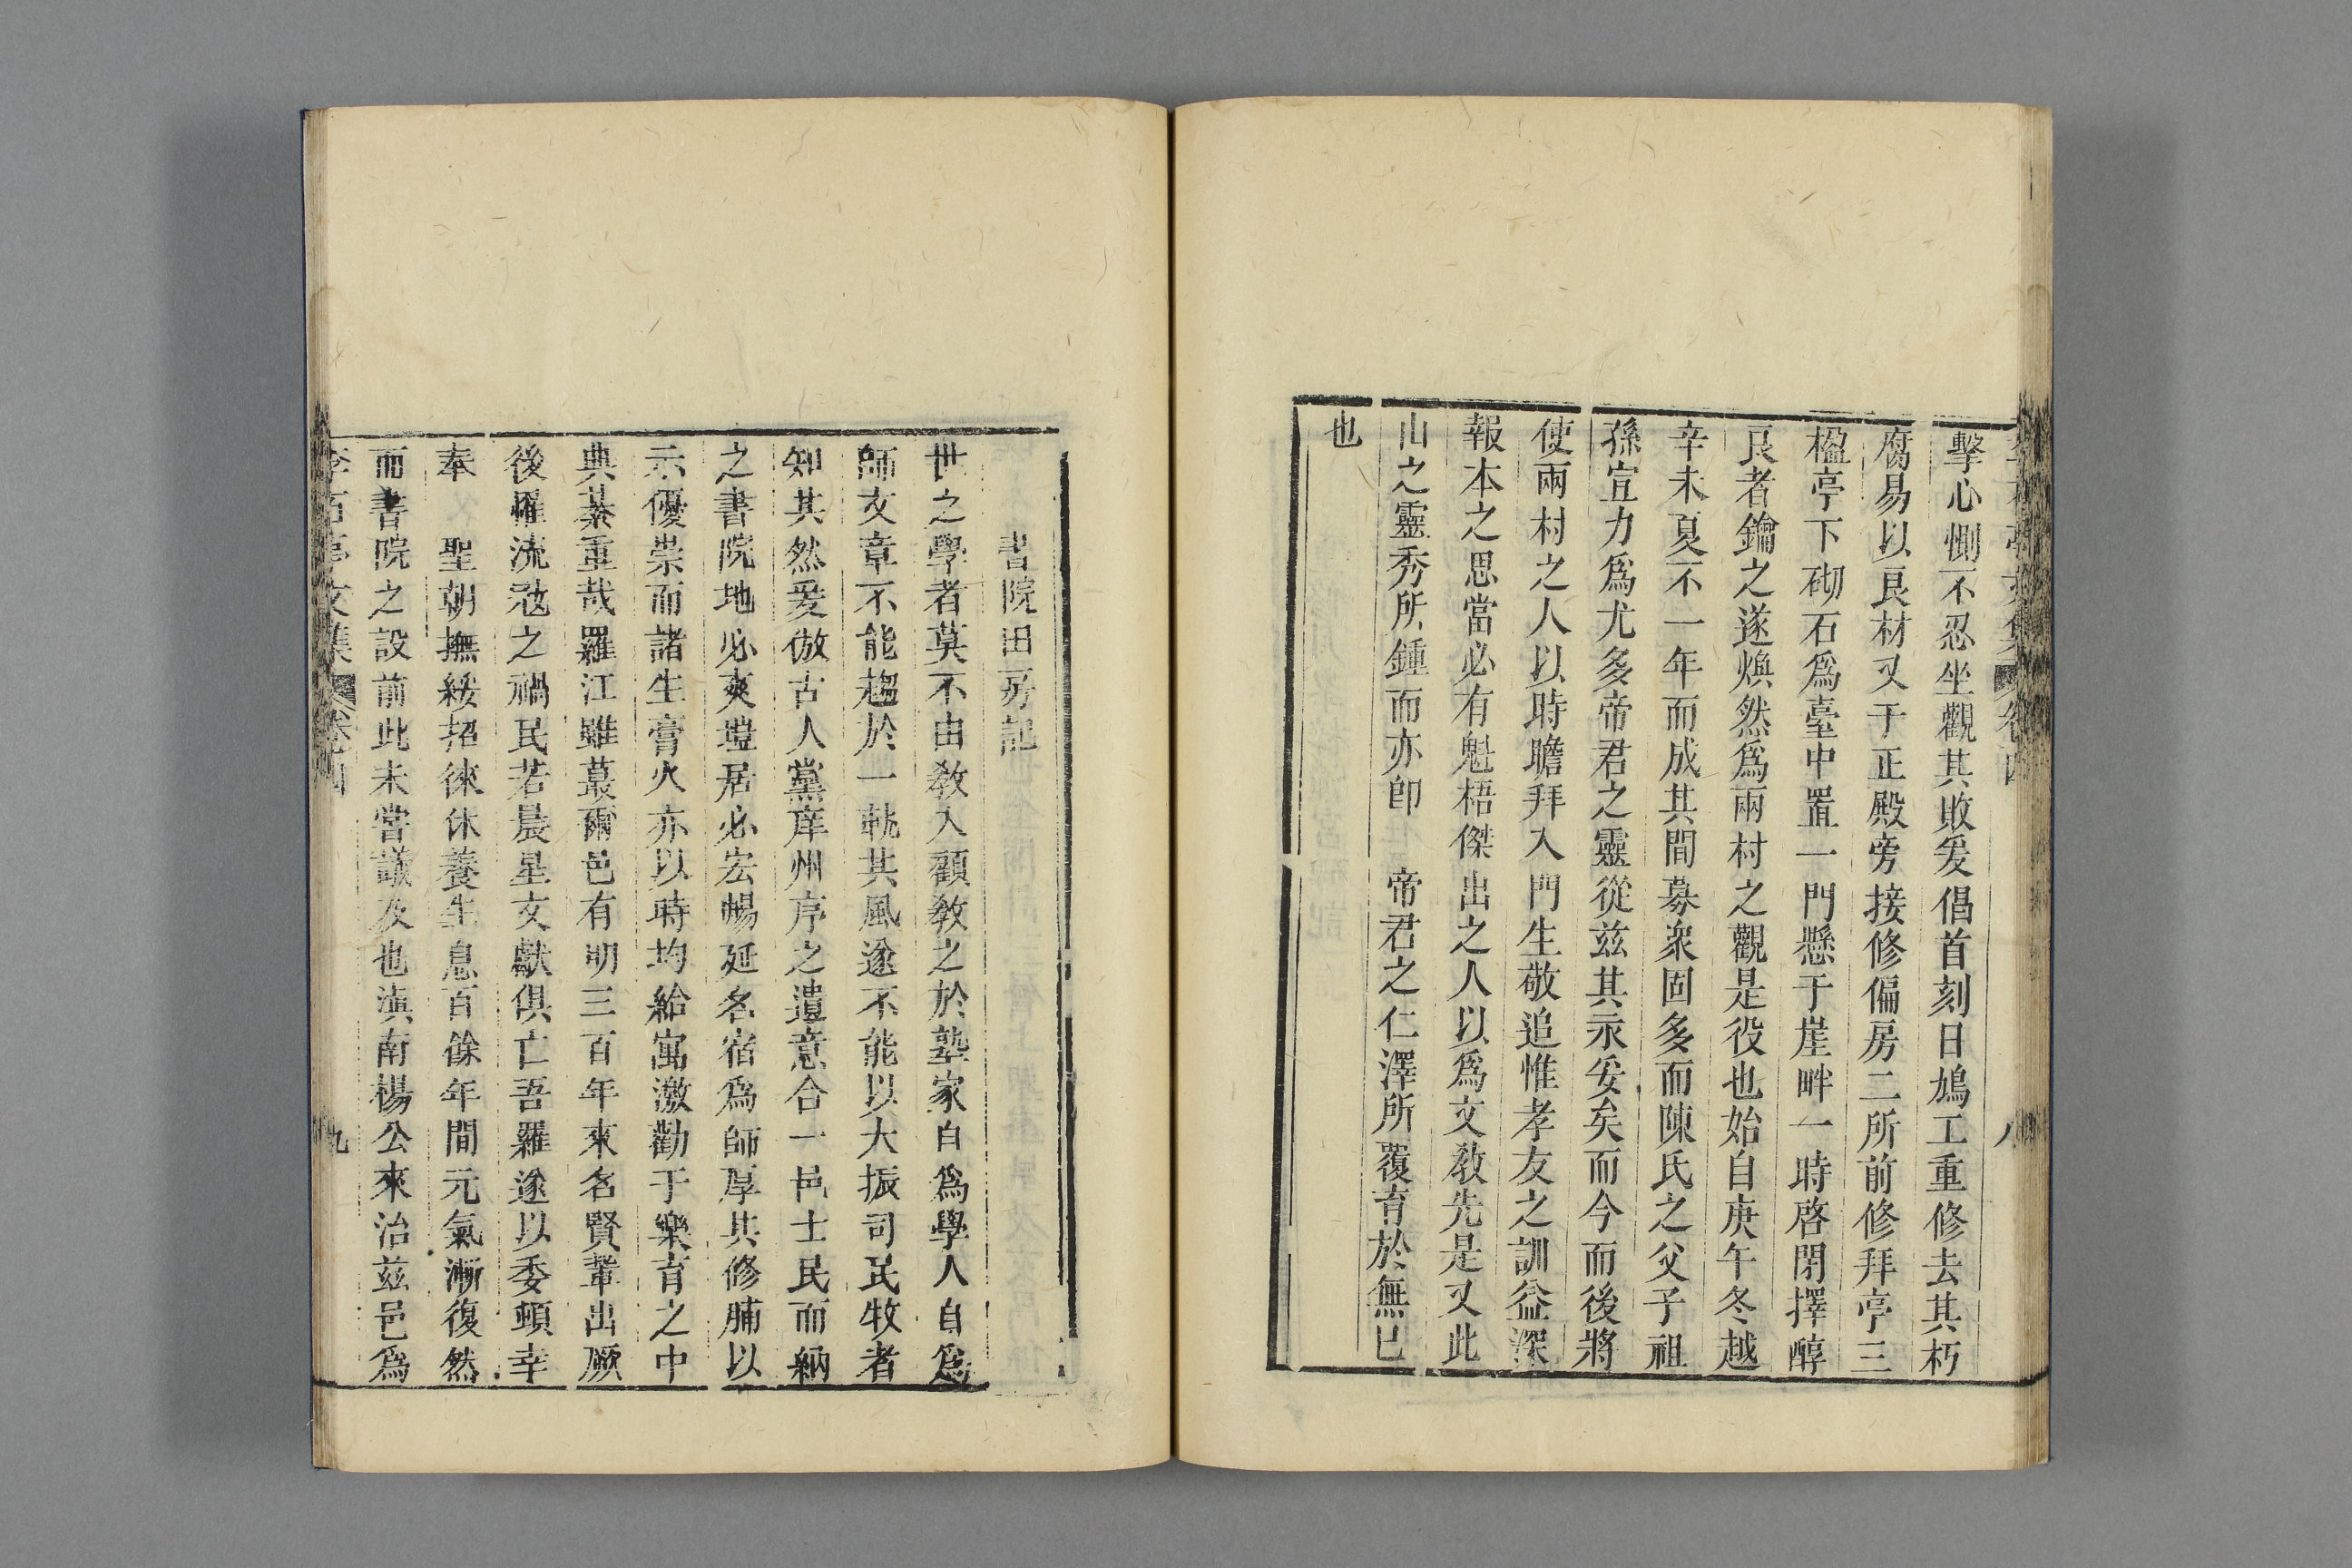 擊心惻不忍坐觀其敗爰倡首刻日鳩工重修去其朽
腐易以良材又于正殿旁接修偏房二所前修拜亭三
楹亭下砌石爲臺中置一門懸于崖畔一時啓閉擇醇
良者鑰之遂煥然爲兩村之觀是役也始自庚午冬越
辛未夏不一年而成其間募衆固多而陳氏之父子祖
孫宣力爲尤多帝君之靈從兹其永妥矣而今而後將
使兩村之人以時瞻拜入門生敬追惟孝友之訓益深
報本之思當必有魁梧傑出之人以爲文教先是又此
山之靈秀所鍾而亦卽　帝君之仁澤所覆育於無已
也
書院田房記
世之學者莫不由教入顧教之於塾家自爲學人自爲
師文章不能趨於一軌其風遂不能以大振司民牧者
知其然爰倣古人黨庠州序之遺意合一邑士民而納
之書院地必爽塏居必宏暢延名宿爲師厚其修脯以
示優崇而諸生膏火亦以時均給寓激勸于樂育之中
典綦重哉羅江雖蕞爾邑有明三百年來名賢輩出厥
後罹流寇之禍民若晨星文獻俱亡吾羅遂以委頓幸
奉　聖朝撫綏招徠休養生息百餘年間元氣漸復然
而書院之設前此未嘗議及也滇南楊公來治兹邑爲
李石亭文集　卷四　九